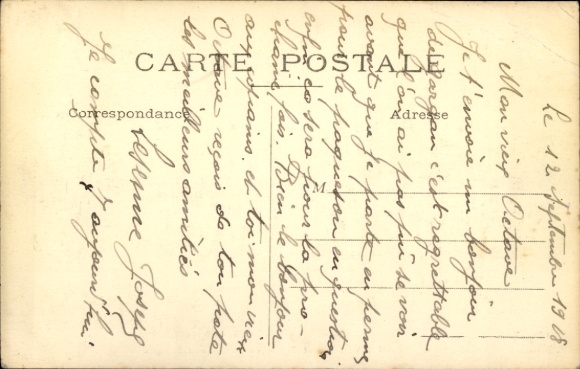 CARTE POSTALE
Correspondance
Adresse
M
Le 12 Septembre 1918
Mon vieux Octave
Je t'envoie un bonjour
c'est regrettable
que j'ai pas pu te voir
avant que je parte en perme
pour le paquetou en question
enfin ce sera pour la pro-
chaine fois. Bien le bonjour
aux copains. et toi mon vieux
Octave reçois de ton pote
les meilleurs amitiés
Joseph
Je compte 7 aujourd'hui